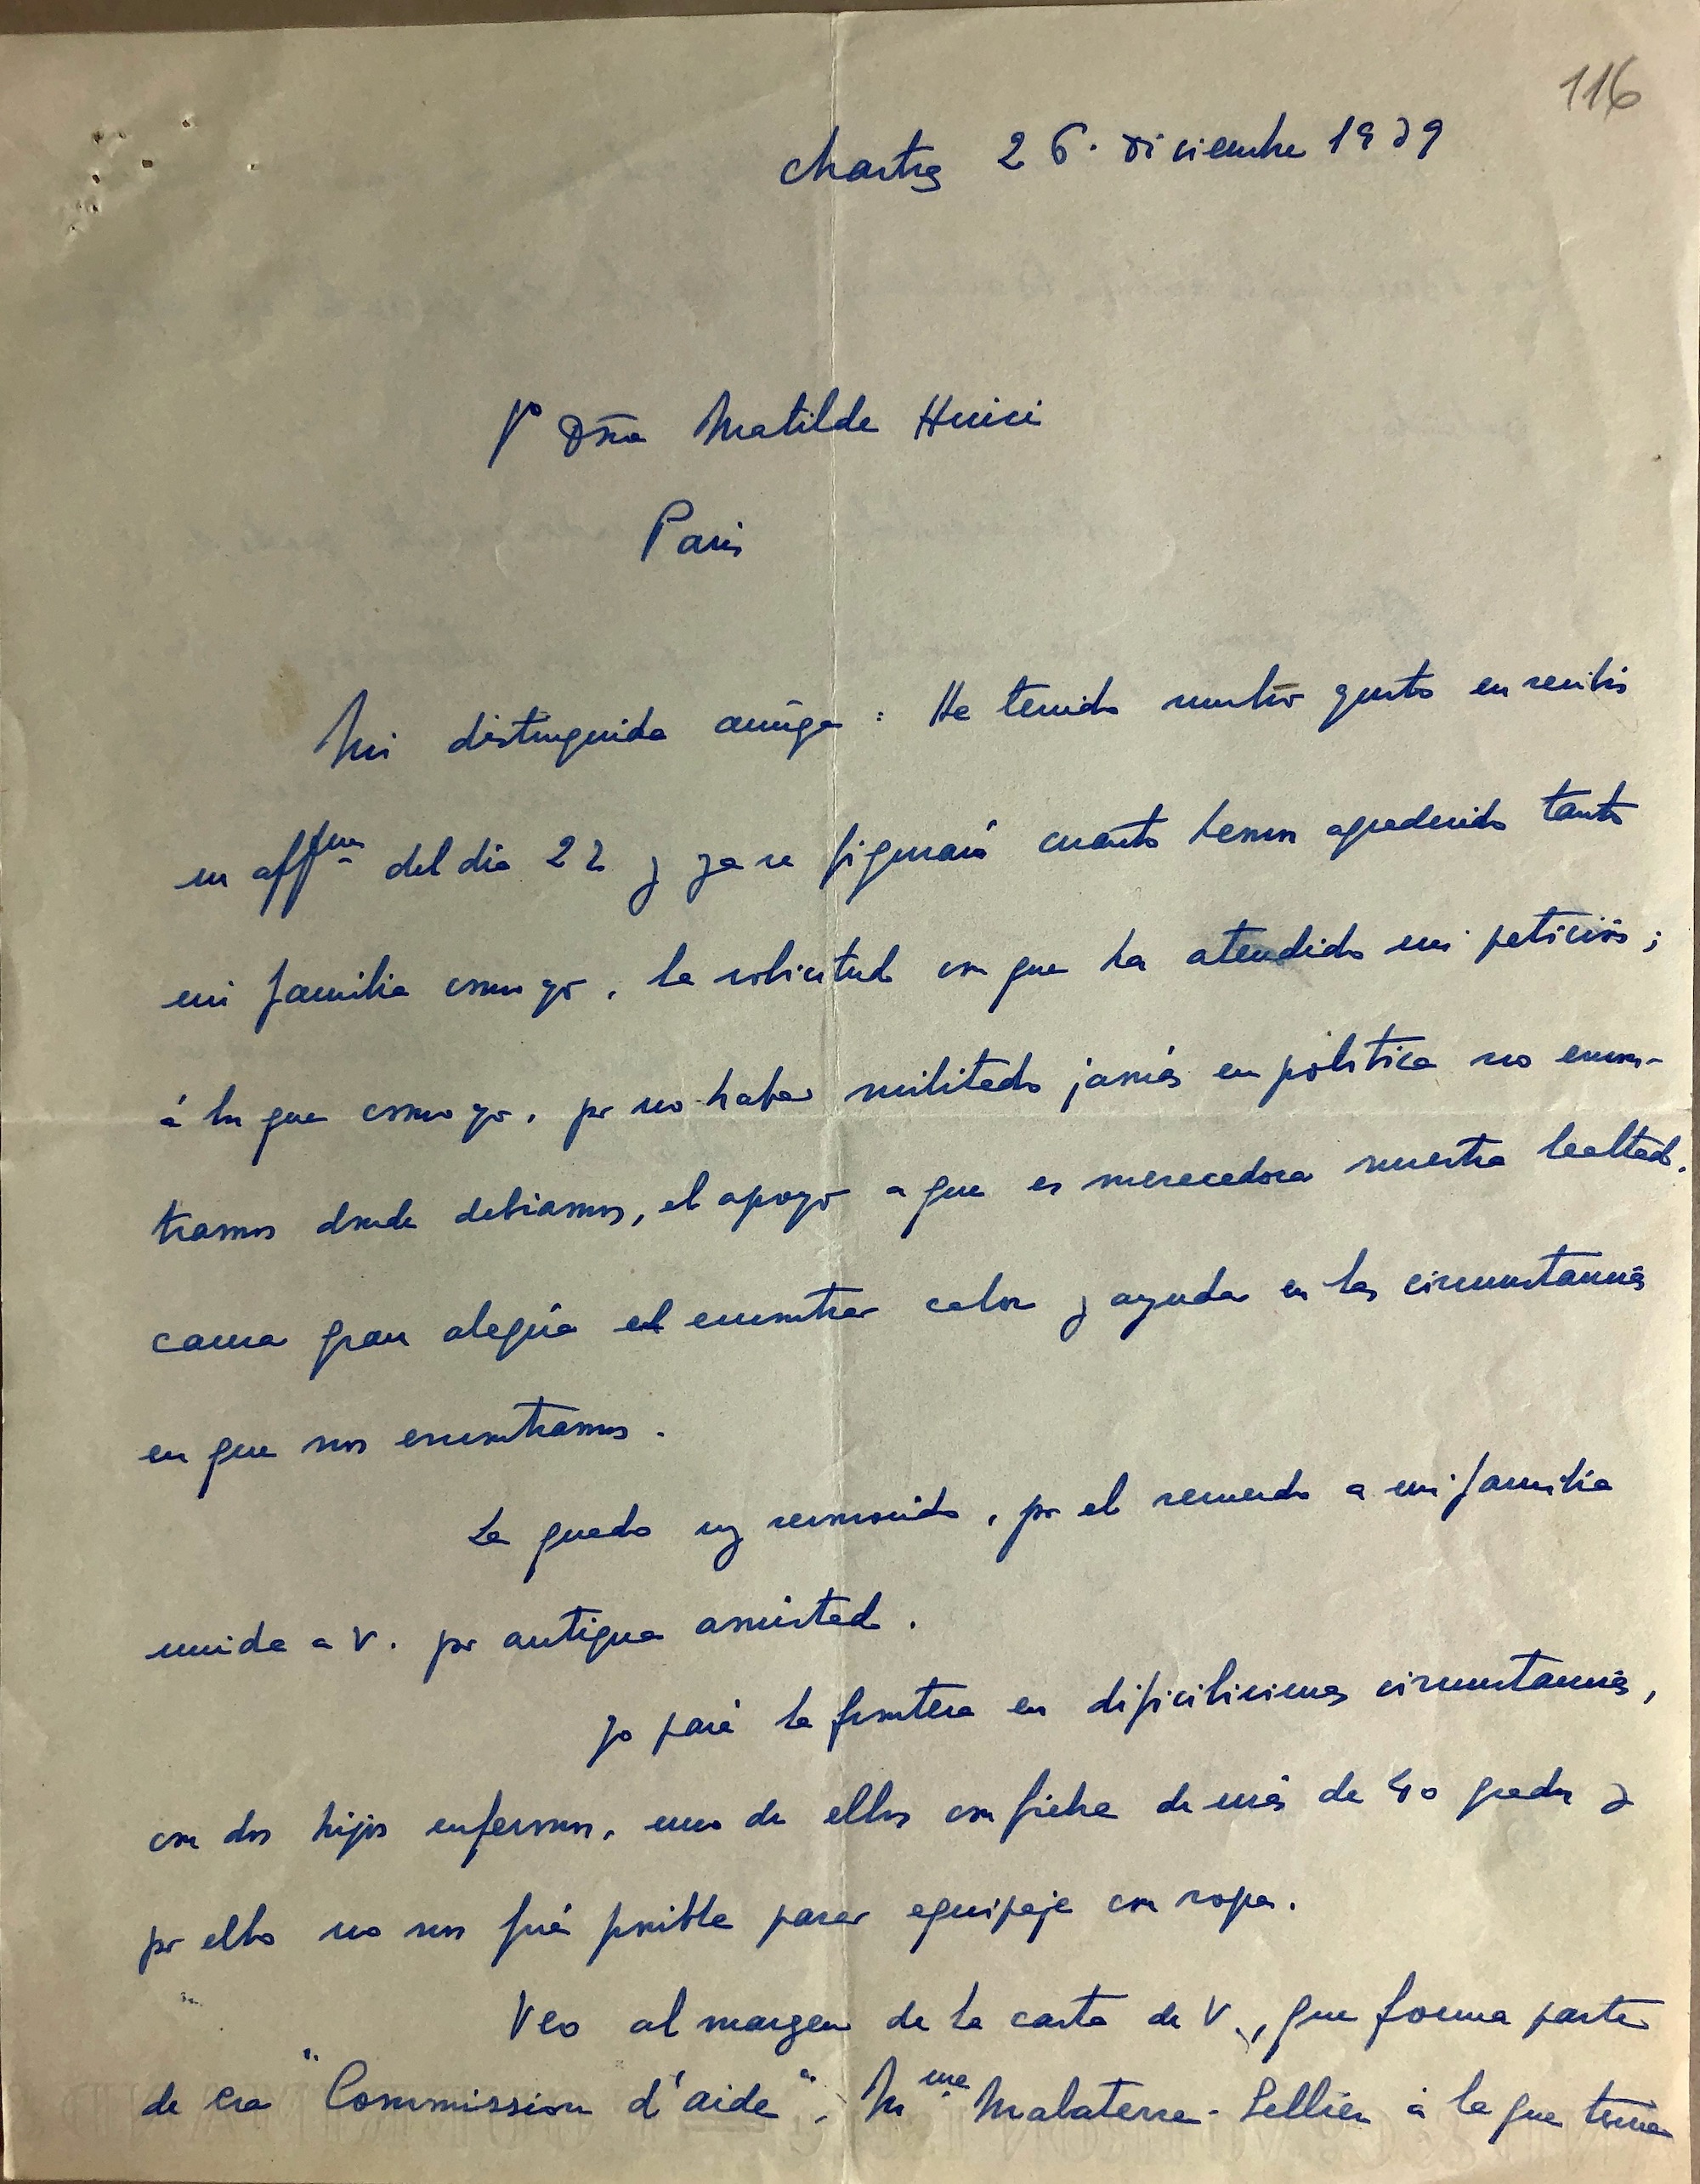 116
Chartres 26. Diciembre 1939
Sª Dña Matilde Huici
Paris
Mi distinguida amiga: He tenido mucho gusto en recibir
su affma del dia 22 y ya se figurará cuanto hemos agradecido tanto
mi familia como yo, la solicitud con que ha atendido mi petición;
á los que como yo, por no haber militado jamás en política no encon-
tramos donde debiamos, el apoyo a que es merecedora nuestra lealtad,
causa gran alegria el encontrar calor y ayuda en las circunstancias
en que nos encontramos.
Le quedo muy reconocido, por el recuerdo a mi familia
unida a V. por antigua amistad.
Yo pasé la frontera en dificilisimas circunstancias,
con dos hijos enfermos, uno de ellos con fiebre de más de 40 grados y
por ello no nos fué posible pasar equipaje con ropa.
Veo al margen de la carta de V., que forma parte
de esa "Commission d'aide", Mme Malaterre-Sellier a la que tenia